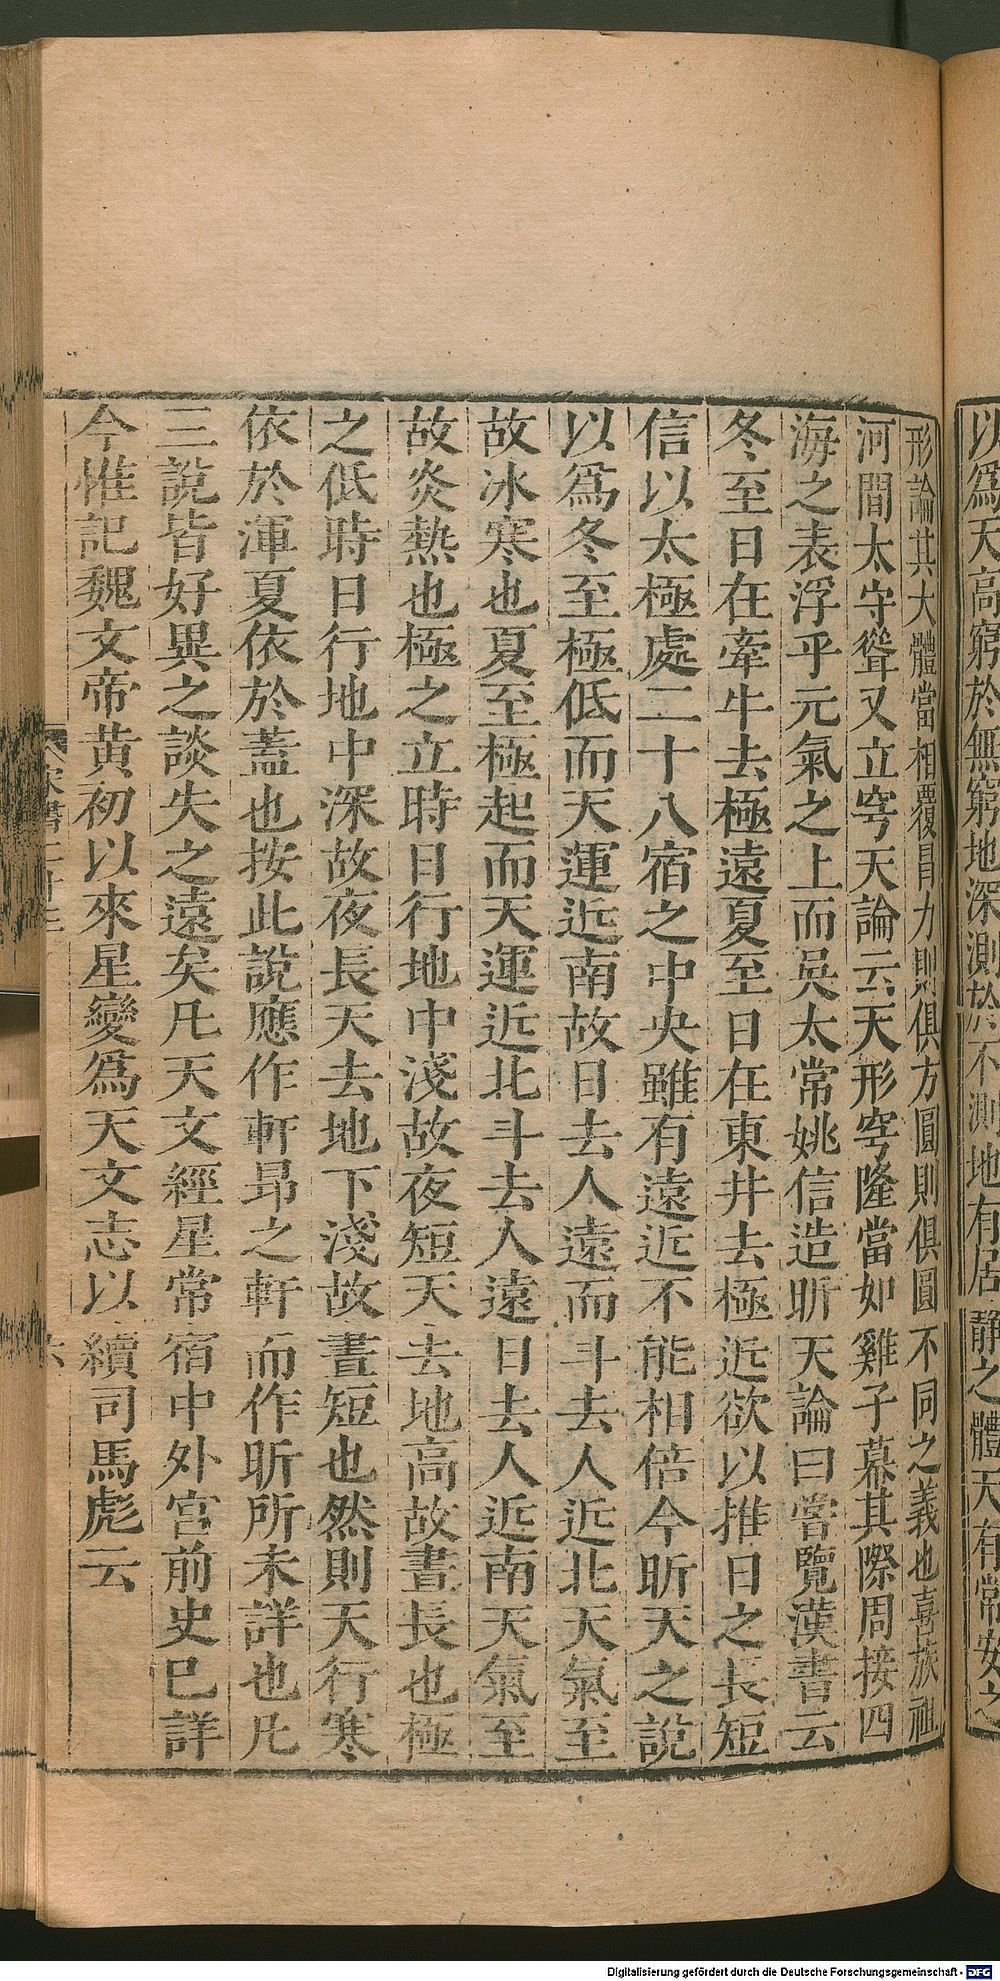 以爲天高窮於無窮地深測於不測地有居靜之體天有常安之
形論其大體當相覆冒方則俱方圓則俱圓不同之義也喜族祖
河間太守聳又立穹天論云天形穹隆當如雞子幕其際周接四
海之表浮乎元氣之上而吳太常姚信造昕天論曰嘗覽漢書云
冬至日在牽牛去極遠夏至日在東井去極近欲以推日之長短
信以太極處二十八宿之中央雖有遠近不能相倍今昕天之說
以爲冬至極低而天運近南故日去人遠而斗去人近北天氣至
故冰寒也夏至極起而天運近北斗去人遠日去人近南天氣至
故炎熱也極之立時日行地中淺故夜短天去地高故晝長也極
之低時日行地中深故夜長天去地下淺故晝短也然則天行寒
依於渾夏依於蓋也按此說應作軒昂之軒而作昕所未詳也凡
三說皆好異之談失之遠矣凡天文經星常宿中外宮前史已詳
今惟記魏文帝黃初以來星變爲天文志以續司馬彪云
宋書二十三
六
Digitalisierung gefördert durch die Deutsche Forschungsgemeinschaft - DFG